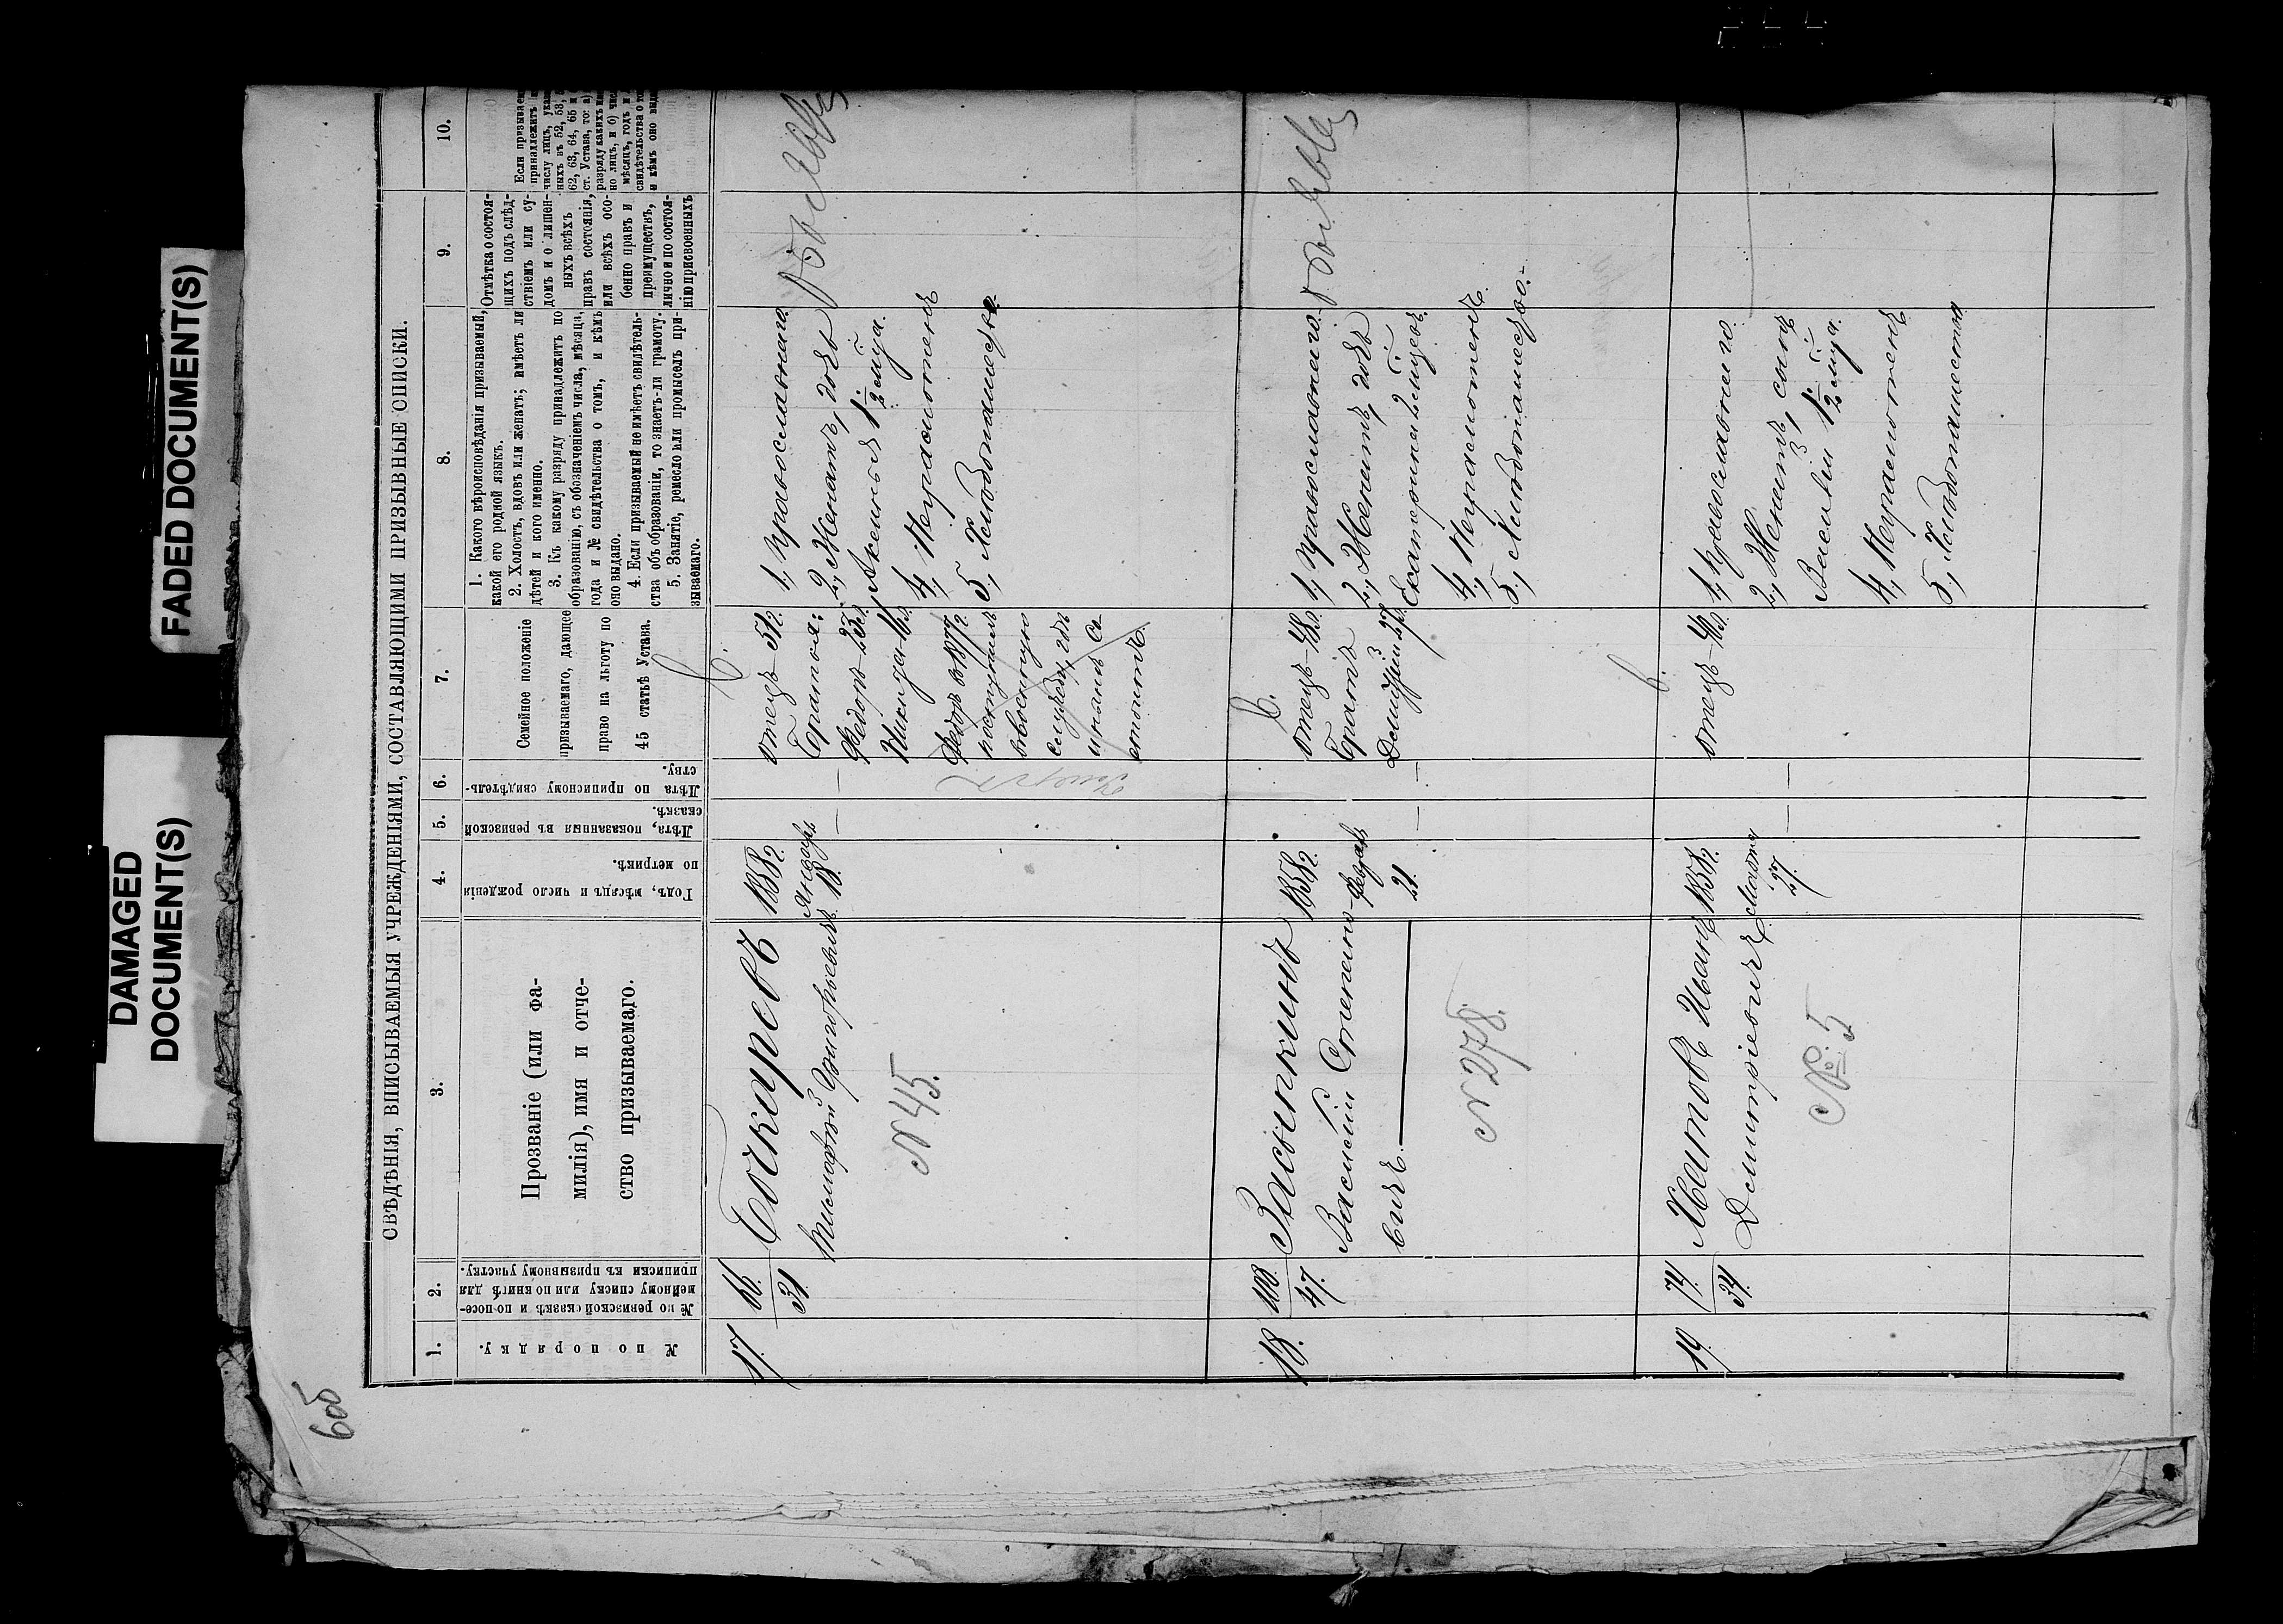 FADED DOCUMENT(S)
DAMAGED
DOCUMENT(S)
6об
СВѢДѢНІЯ, ВПИСЫВАЕМЫЯ УЧРЕЖДЕНІЯМИ, СОСТАВЛЯЮЩИМИ ПРИЗЫВНЫЕ СПИСКИ.
1.
2.
3.
4.
5.
6.
7.
8.
9.
10.
№ по порядку.
№ по ревизской сказкѣ и по посе-
мейному списку или по книгѣ для
приписки къ призывному участку.
Прозваніе (или фа-
милія), имя и отче-
ство призываемаго.
Годъ, мѣсяцъ и число рожденія
по метрикѣ.
Лѣта, показанныя въ ревизской
сказкѣ.
Лѣта по приписному свидѣтель-
ству.
Семейное положеніе
призываемаго, дающее
право на льготу по
45 статьѣ Устава.
1. Какого вѣроисповѣданія призываемый,
какой его родной языкъ.
2. Холостъ, вдовъ или женатъ; имѣетъ ли
дѣтей и кого именно.
3. Къ какому разряду принадлежитъ по
образованію, съ обозначеніемъ числа, мѣсяца,
года и № свидѣтельства о томъ, и кѣмъ
оно выдано.
4. Если призываемый не имѣетъ свидѣтель-
ства объ образованіи, то знаетъ-ли грамоту.
5. Занятіе, ремесло или промыселъ при-
зываемаго.
Отмѣтка о состоя-
щихъ подъ слѣд-
ствіемъ или су-
домъ и о лишен-
ныхъ всѣхъ
правъ состоянія,
или всѣхъ осо-
бенно правъ и
преимуществъ,
лично и по состоя-
нію присвоенныхъ
Если призываем
принадлежитъ
числу лицъ, ука
ныхъ въ 52, 53,
62, 63, 64, 65 и
ст. Устава, то: а)
разряду какихъ
но лицъ, и б) чис
мѣсяцъ, годъ и
свидѣтельства о то
и кѣмъ оно выда
17.
66.
31.
Бочкаревъ
Тимофей Григорьевичъ
N 45.
1858 г.
Января
18.
—
—
отецъ 51.
Братья:
Федоръ 23 л.
Никита 16 л.
Федоръ въ 1877 г.
поступилъ
въ военную
службу, гдѣ
и нынѣ со
стоитъ.
1, Православнаго.
2, Женатъ, дочь
Аксинья 1 1/2 м-ца.
4, Неграмотенъ
5, Хлѣбопашество.
18.
108.
47.
Засыпкинъ
Василій Степано-
вичъ.
N 278.
1858 г.
Февраля
21.
—
—
отецъ 48 л.
Братъ
Дмитрій 27 л.
1, Православнаго.
2, Женатъ, дочь
Екатерина 2 м-цевъ.
4, Неграмотенъ.
5, Хлѣбопашество.
19.
74.
34.
Иванъ
Дмитріевичъ.
№ 5
1858 г.
27.
—
—
отецъ 46 л.
1, Православнаго.
2, Женатъ, сынъ
Василій 1 1/2 м-ца.
4, Неграмотенъ
5, Хлѣбопашество